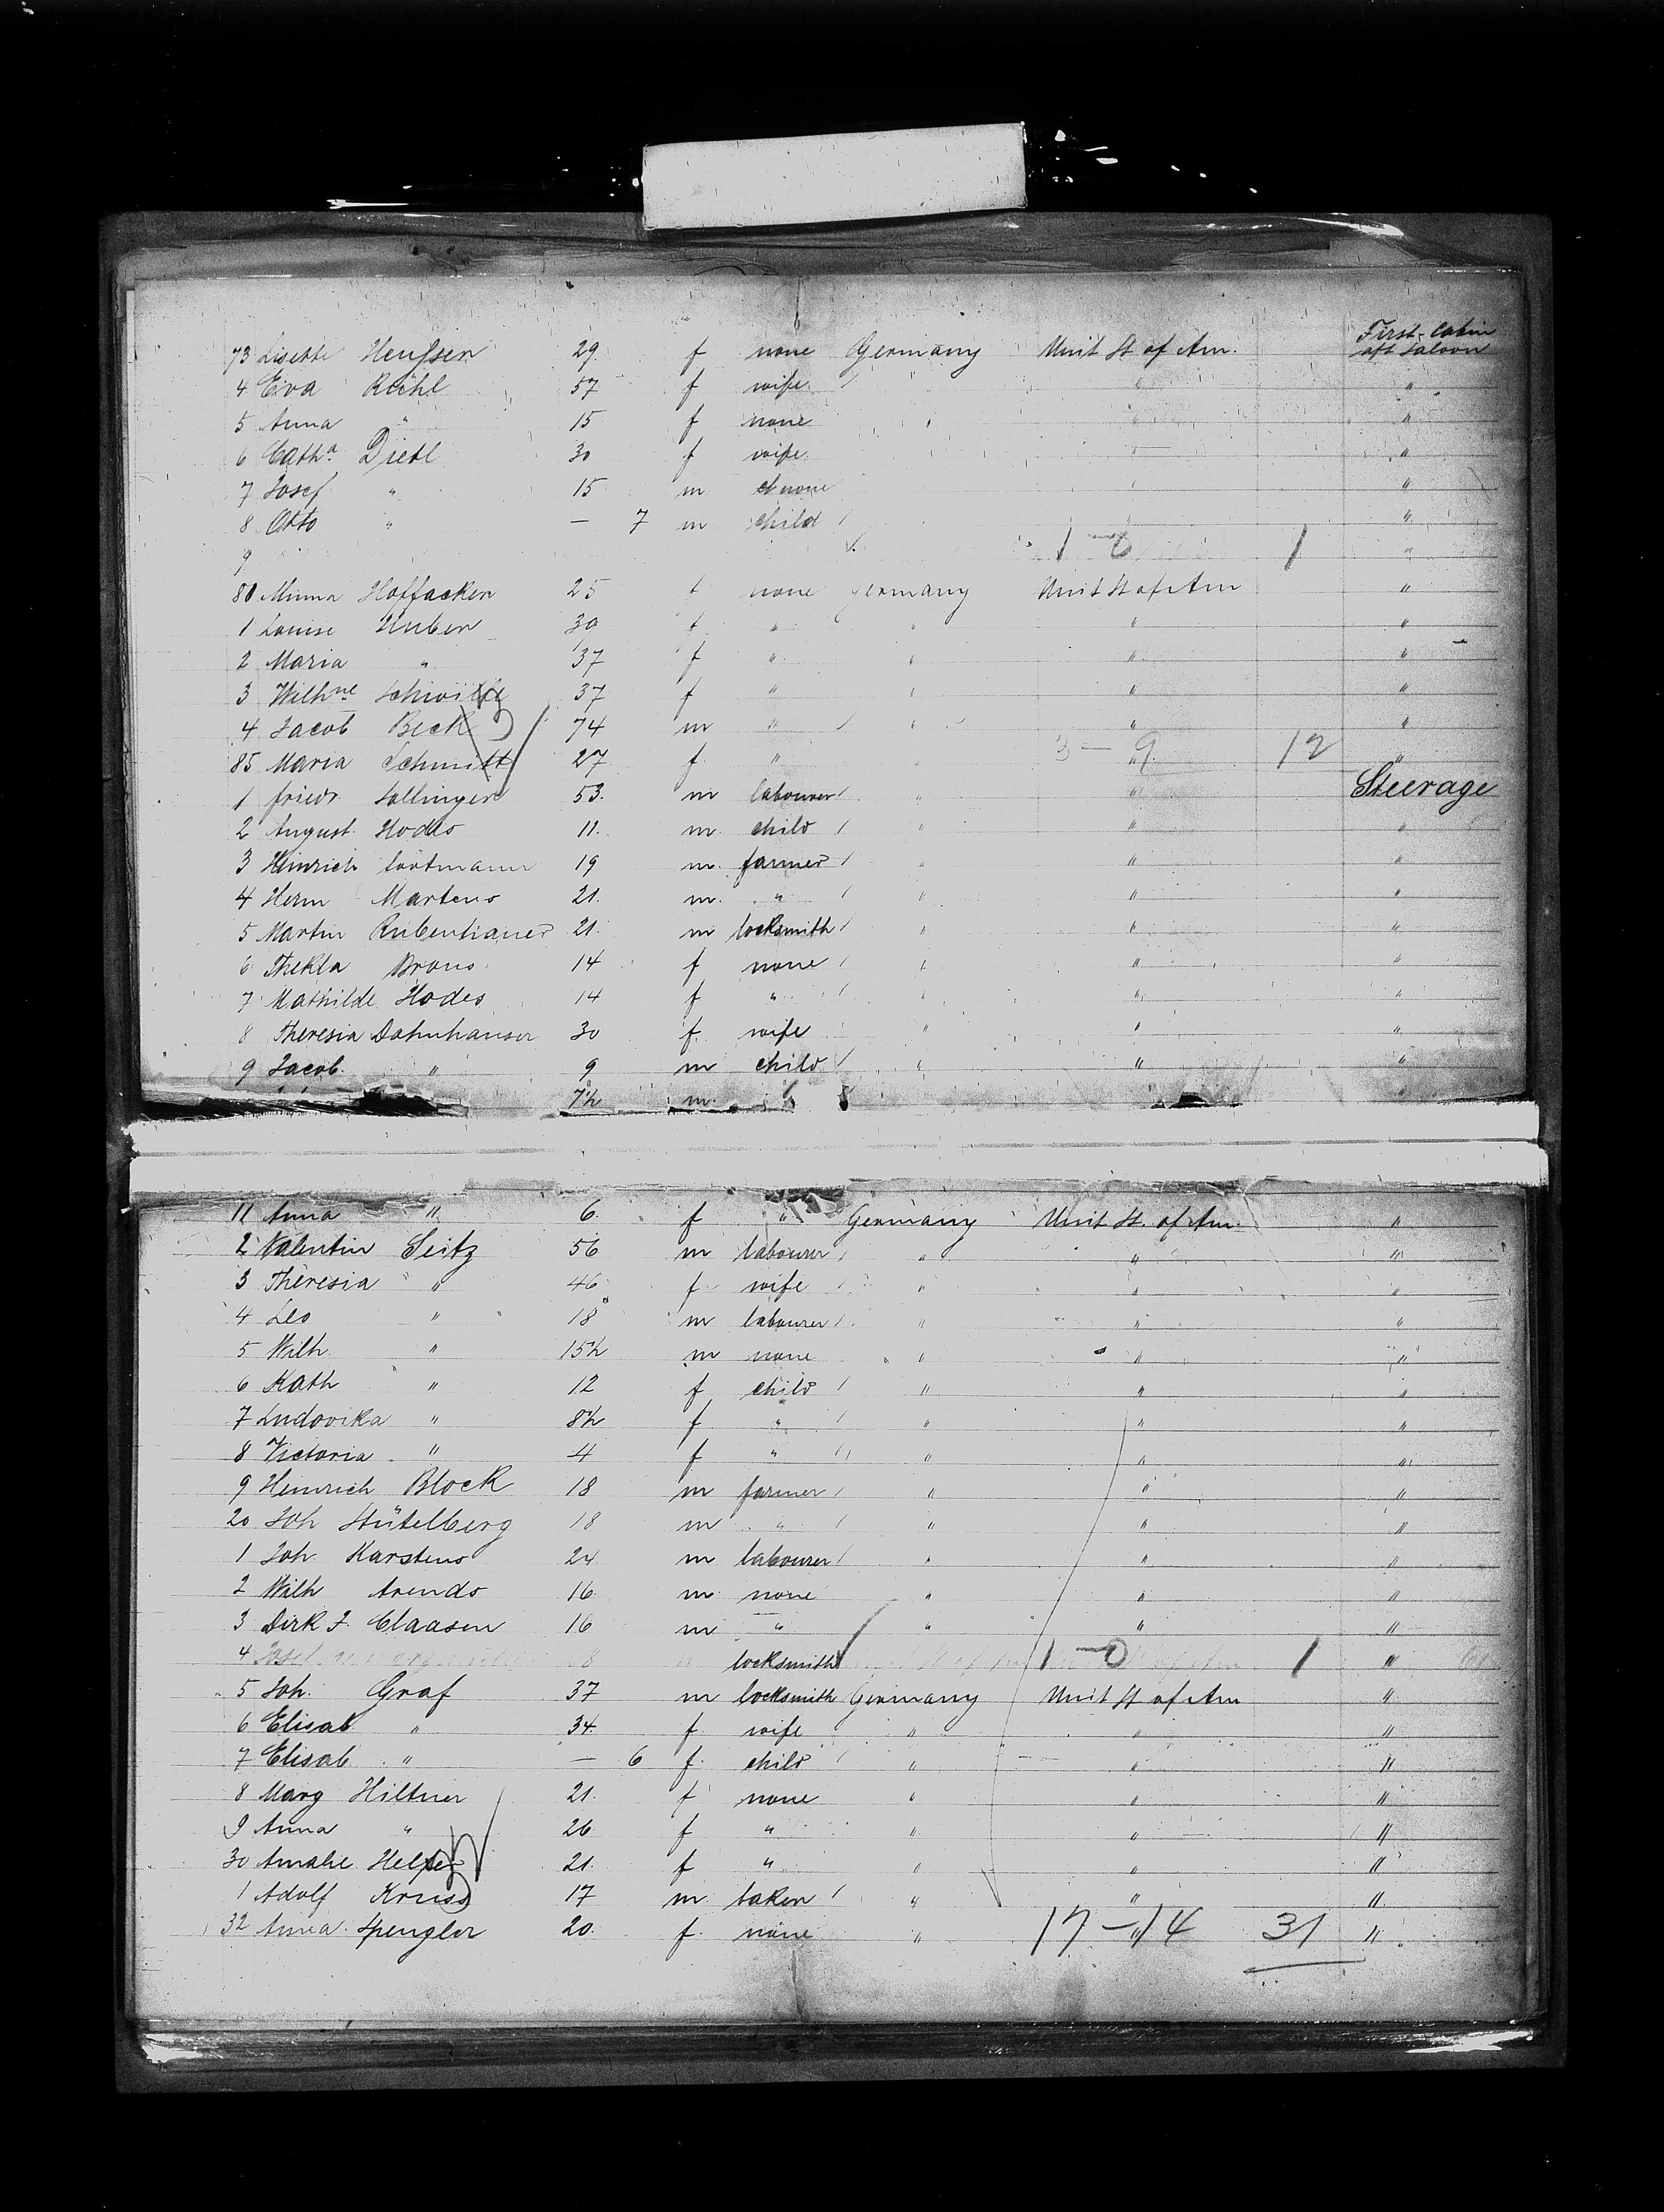 First-Cabin
73 Lisette Heussen 29. f none Germany Unit St of Am. aft Saloon
4 Eva Rühl 57 f wife " "
5 Anna " 15 f none " " "
6 Catha Dietl 30 f wife " "
7 Josef " 15 m none " "
8 Otto " — 7 m child " "
9 1-0 1 "
80 Minna Hoffacker 25 f none Germany Unit St of Am "
1 Louise Huber 30 f " " " "
2 Maria " 37 f " " " "
3 Wilhne 37 f " " " "
4 Jacob Beck 74 m " " " "
3-9 12
85 Maria Schmitt 27 f. " " " "
1 friedr Sollinger 53. m labourer " " Steerage
2 August Hodes 11. m. child " " "
3 Heinrich Cortmann 19 m. farmer " " "
4 Herm Martens 21. m. " " " "
5 Martin 21. m locksmith " " "
6 Thekla Brons 14 f none " " "
7 Mathilde Hodes 14 f " " " "
8 Theresia Dahnhauser 30 f. wife " " "
9 Jacob " 9 m child " " "
7½ m. "
11 Anna " 6. f " Germany Unit St. of Am. "
2 Valentin Seitz 56 m labourer " " "
3 Theresia " 46 f wife " " "
4 Leo " 18 m labourer " " "
5 Wilh " 15½ m none " " "
6 Kath " 12 f child " " "
7 Ludovika " 8½ f " " " "
8 Victoria " 4 f " " " "
9 Heinrich Block 18 m farmer " " "
20 Joh Stütelberg 18 m " " " "
1 Joh Karstens 24 m labourer " " "
2 Wilh Arends 16 m none " " "
3 Dirk J. Claasen 16 m " " " "
4 Josef 8 locksmith 1-0 1 "
5 Joh. Graf 37 m locksmith Germany Unit St of Am "
6 Elisab " 34. f. wife " " "
7 Elisab " — 6 f. child " " "
8 Marg Hiltner 21. f none " " "
9 Anna " 26 f " " " "
30 Amalie Helfer 21. f " " " "
1 Adolf Kruss 17 m baker " " "
32 Anna Spengler 20. f. none " " "
17-14 31